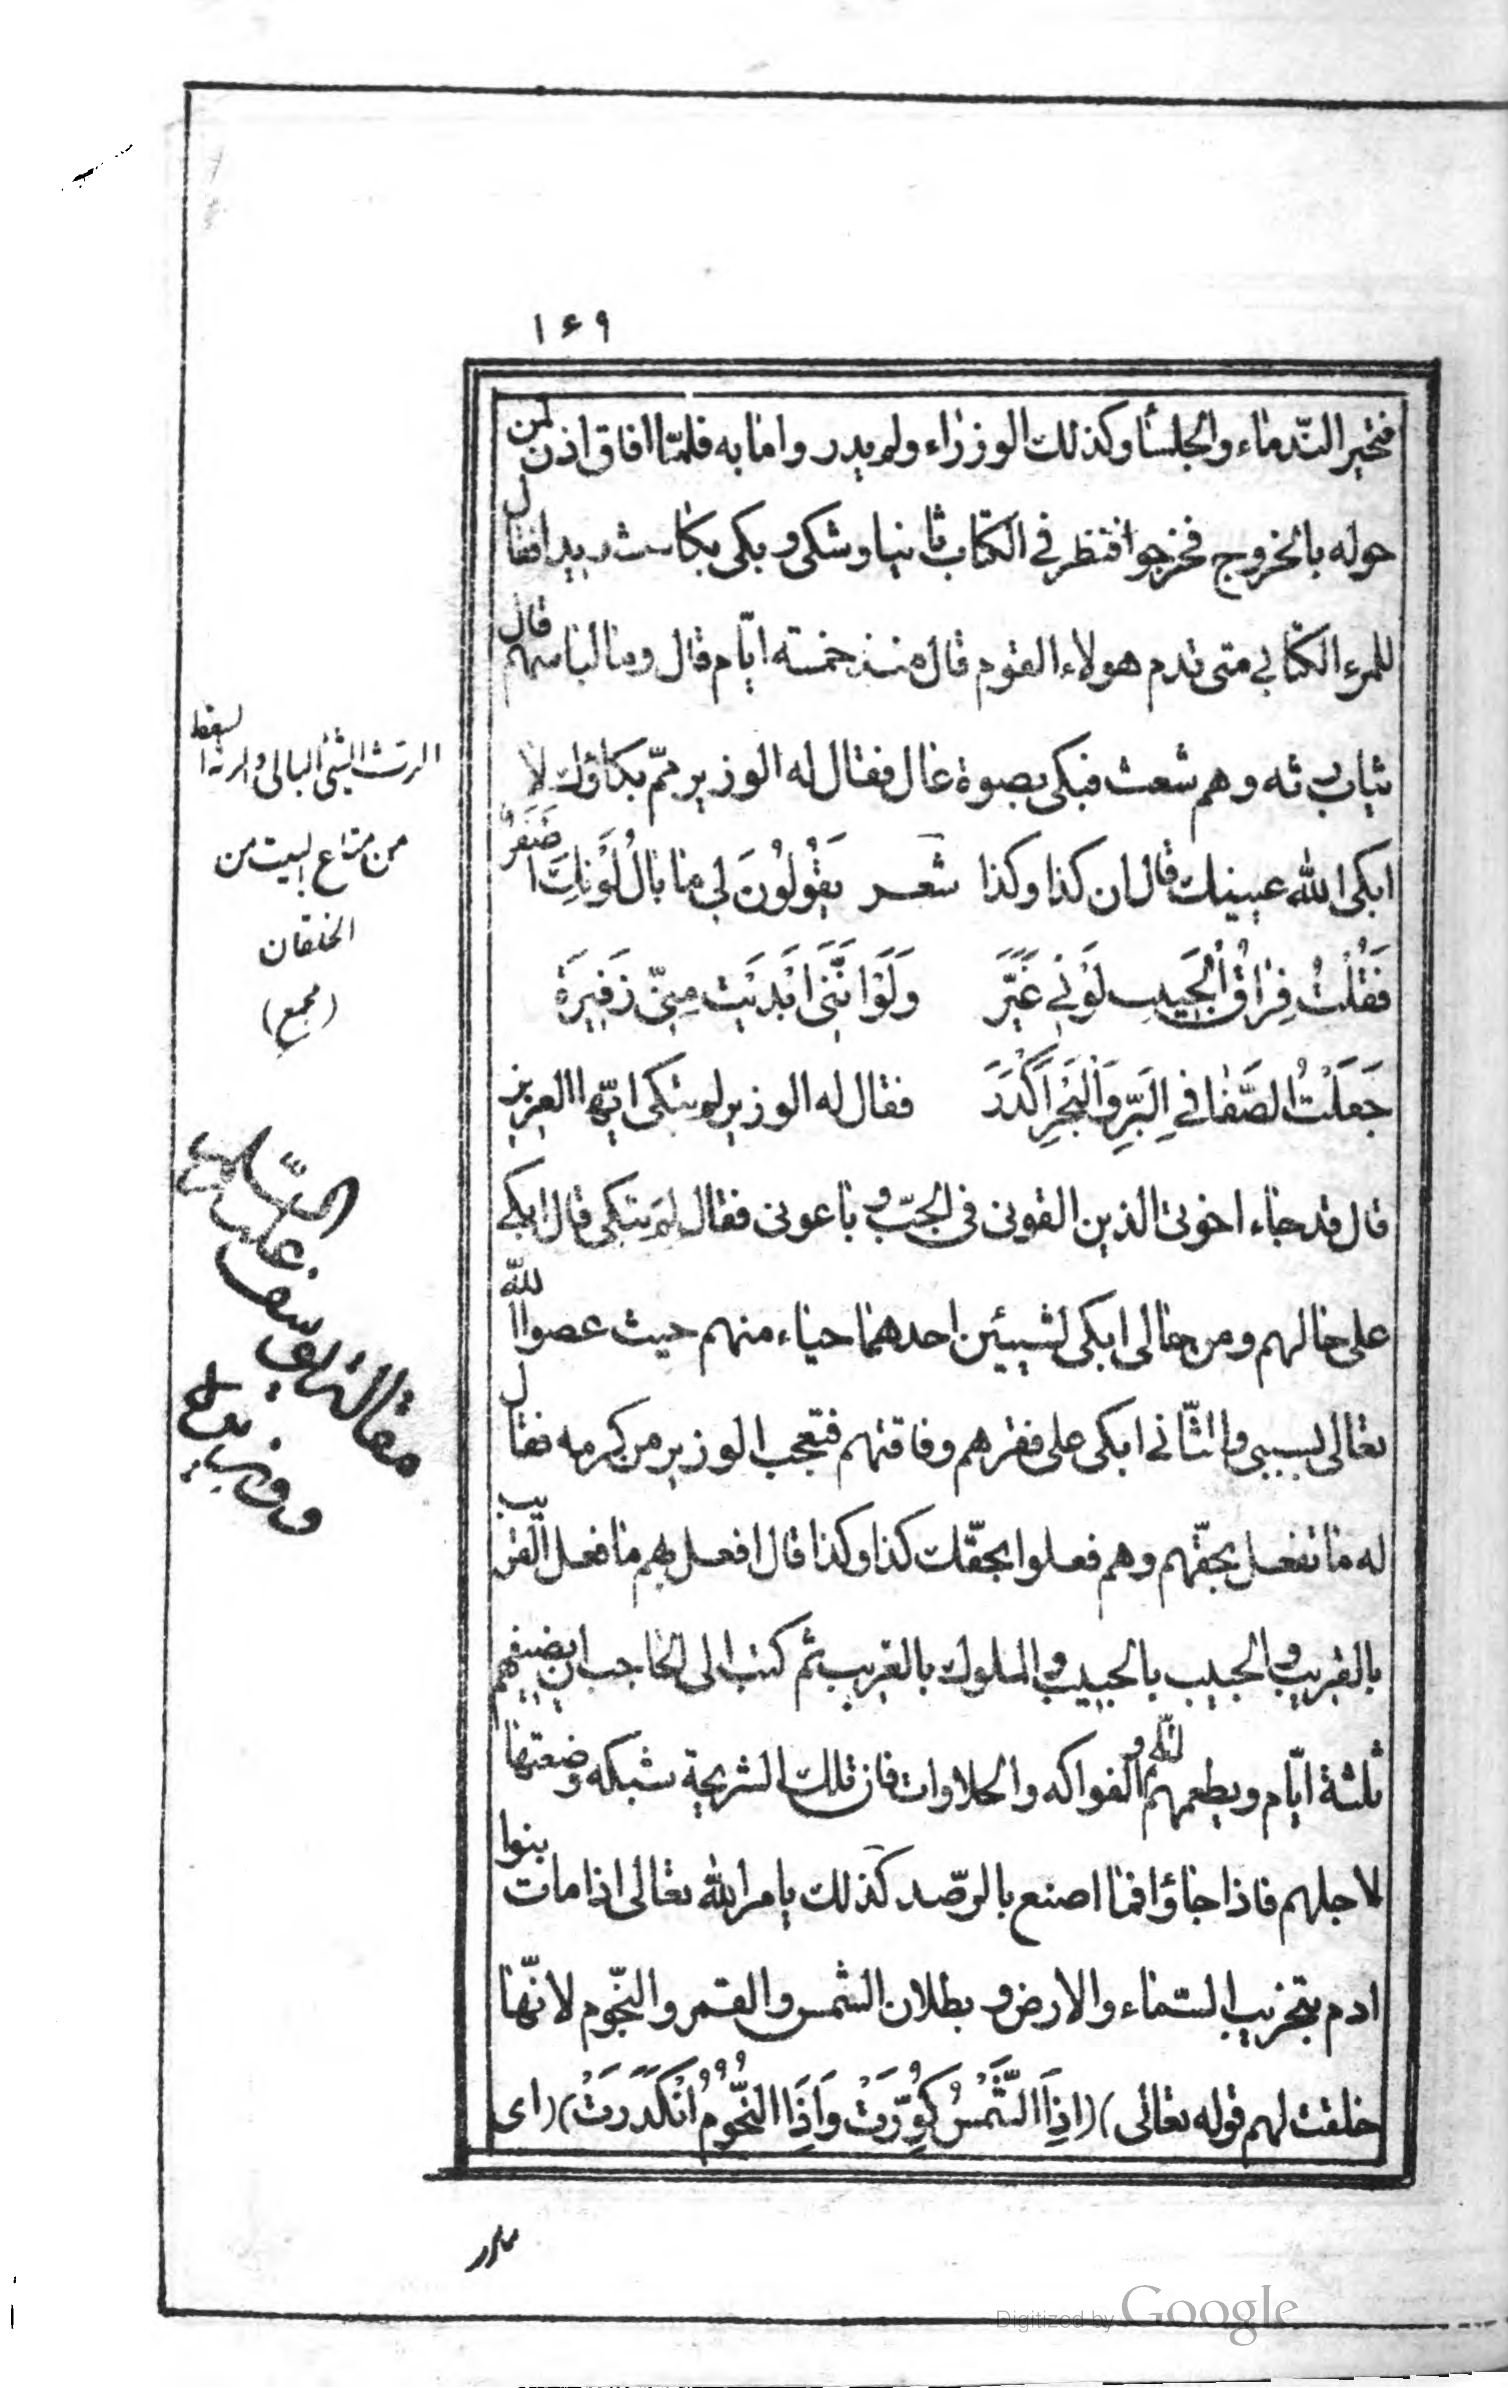 ۱۶۹
فتحیر النّدماء والجلسأ وكذلك الوزراء ولم يدر واما به فلمّا افاق اذن لمن
حوله بالخروج فخرجوا فنظر فی الكتاب ثانيا وشكی و بكی بكاء شديدا فقال
للمرء الكتابی متى قدم هولاء القوم قال منذ خمسته ايّام قال وما لباسهم قال
ثياب رثه وهم شعث فبكی بصوة عال فقال له الوزير ممّ بكاؤك لا
ابكی الله عينيك قال ان كذا وكذا شعر يَقُولُونَ لی ما بالُ لَوْنِكَ اَصْفَرُ
فَقُلْتُ فِراقُ الْحَبيبِ لَوْنی غَيَّرَ وَلَوْ اَنَّنی اَبْدَيْتُ مِنّی زَفيرَةً
جَعَلْتُ الصَّفا فی الْبَرِّ وَالْبَحْرِ اَكْدَرَ فقال له الوزير لم تبكی ايّها العزيز
قال قد جاء اخوتی الذين القونی فی الجبّ و باعونی فقال لِمَ تبكی قال ابكی
علی حالهم ومن حالی ابكی لشيئين احدهما حياء منهم حيث عصوا الله
تعالی بسببی والثّانی ابكی علی فقرهم وفاقتهم فتعجب الوزير من كرمه فقال
له ما تفعل بحقّهم وهم فعلوا بحقّك كذا وكذا قال افعل بهم ما فعل القريب
بالقريب والحبيب بالحبيب والملوك بالغريب ثم كتب الی الحاجب ان يضيفهم
ثلثة ايّام ويطعمهم الله و الفواكه والحلاوات فان تلك الشريحة شبكه وضعتها
لاجلهم فاذا جاؤا فما اصنع بالرّصد كذلك يامر الله تعالی اذا مات بنوا
ادم بتخريب السّماء والارض و بطلان الشمس والقمر والنّجوم لانّها
خلقت لهم قوله تعالی )(اذِاَ الشَّمْسُ كُوِّرَتْ وَاِذَا النُّجُومُ انْكَدَرَتْ)(ای
الرث الشئ البالی و الرثة السقط
من متاع البيت من
الخلقان
(مجمع)
مقاله يوسف عليه السّلام
و وزير